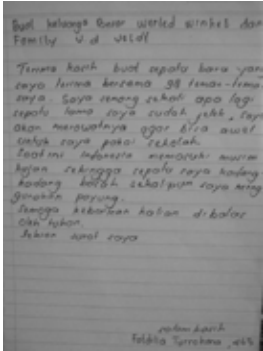 Buat keluarga Besar wereld winkel dan
Family v.d Veldt
Terima kasih buat sepatu baru yang
saya terima bersama 98 teman-teman
saya. Saya senang sekali apa lagi
sepatu lama saya sudah jelek, saya
akan merawatnya agar bisa awet
untuk saya pakai sekolah
Saat ini Indonesia memasuki musim
hujan sehingga sepatu saya kadang
kadang basah sekalipun saya meng
gunakan payung.
Semoga kebaikan kalian dibalas
oleh tuhan.
Sekian dari saya
salam kasih